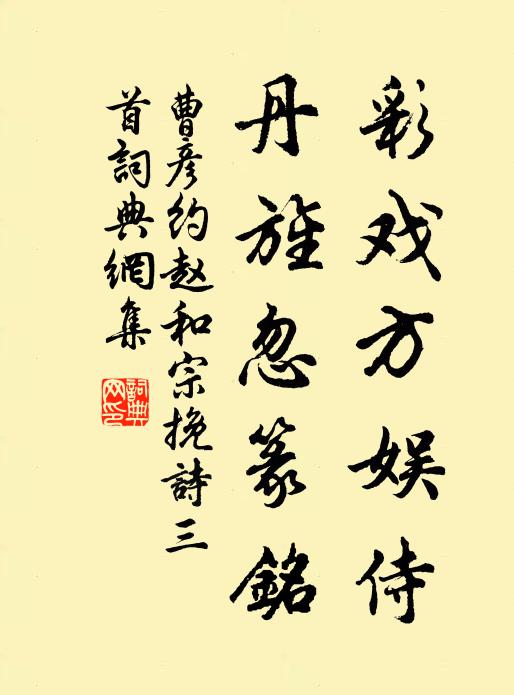 彩戏方娱侍
丹旌忽篆銘
曹彦約赵和宗挽詩三
首詞典網集
詞典
网印